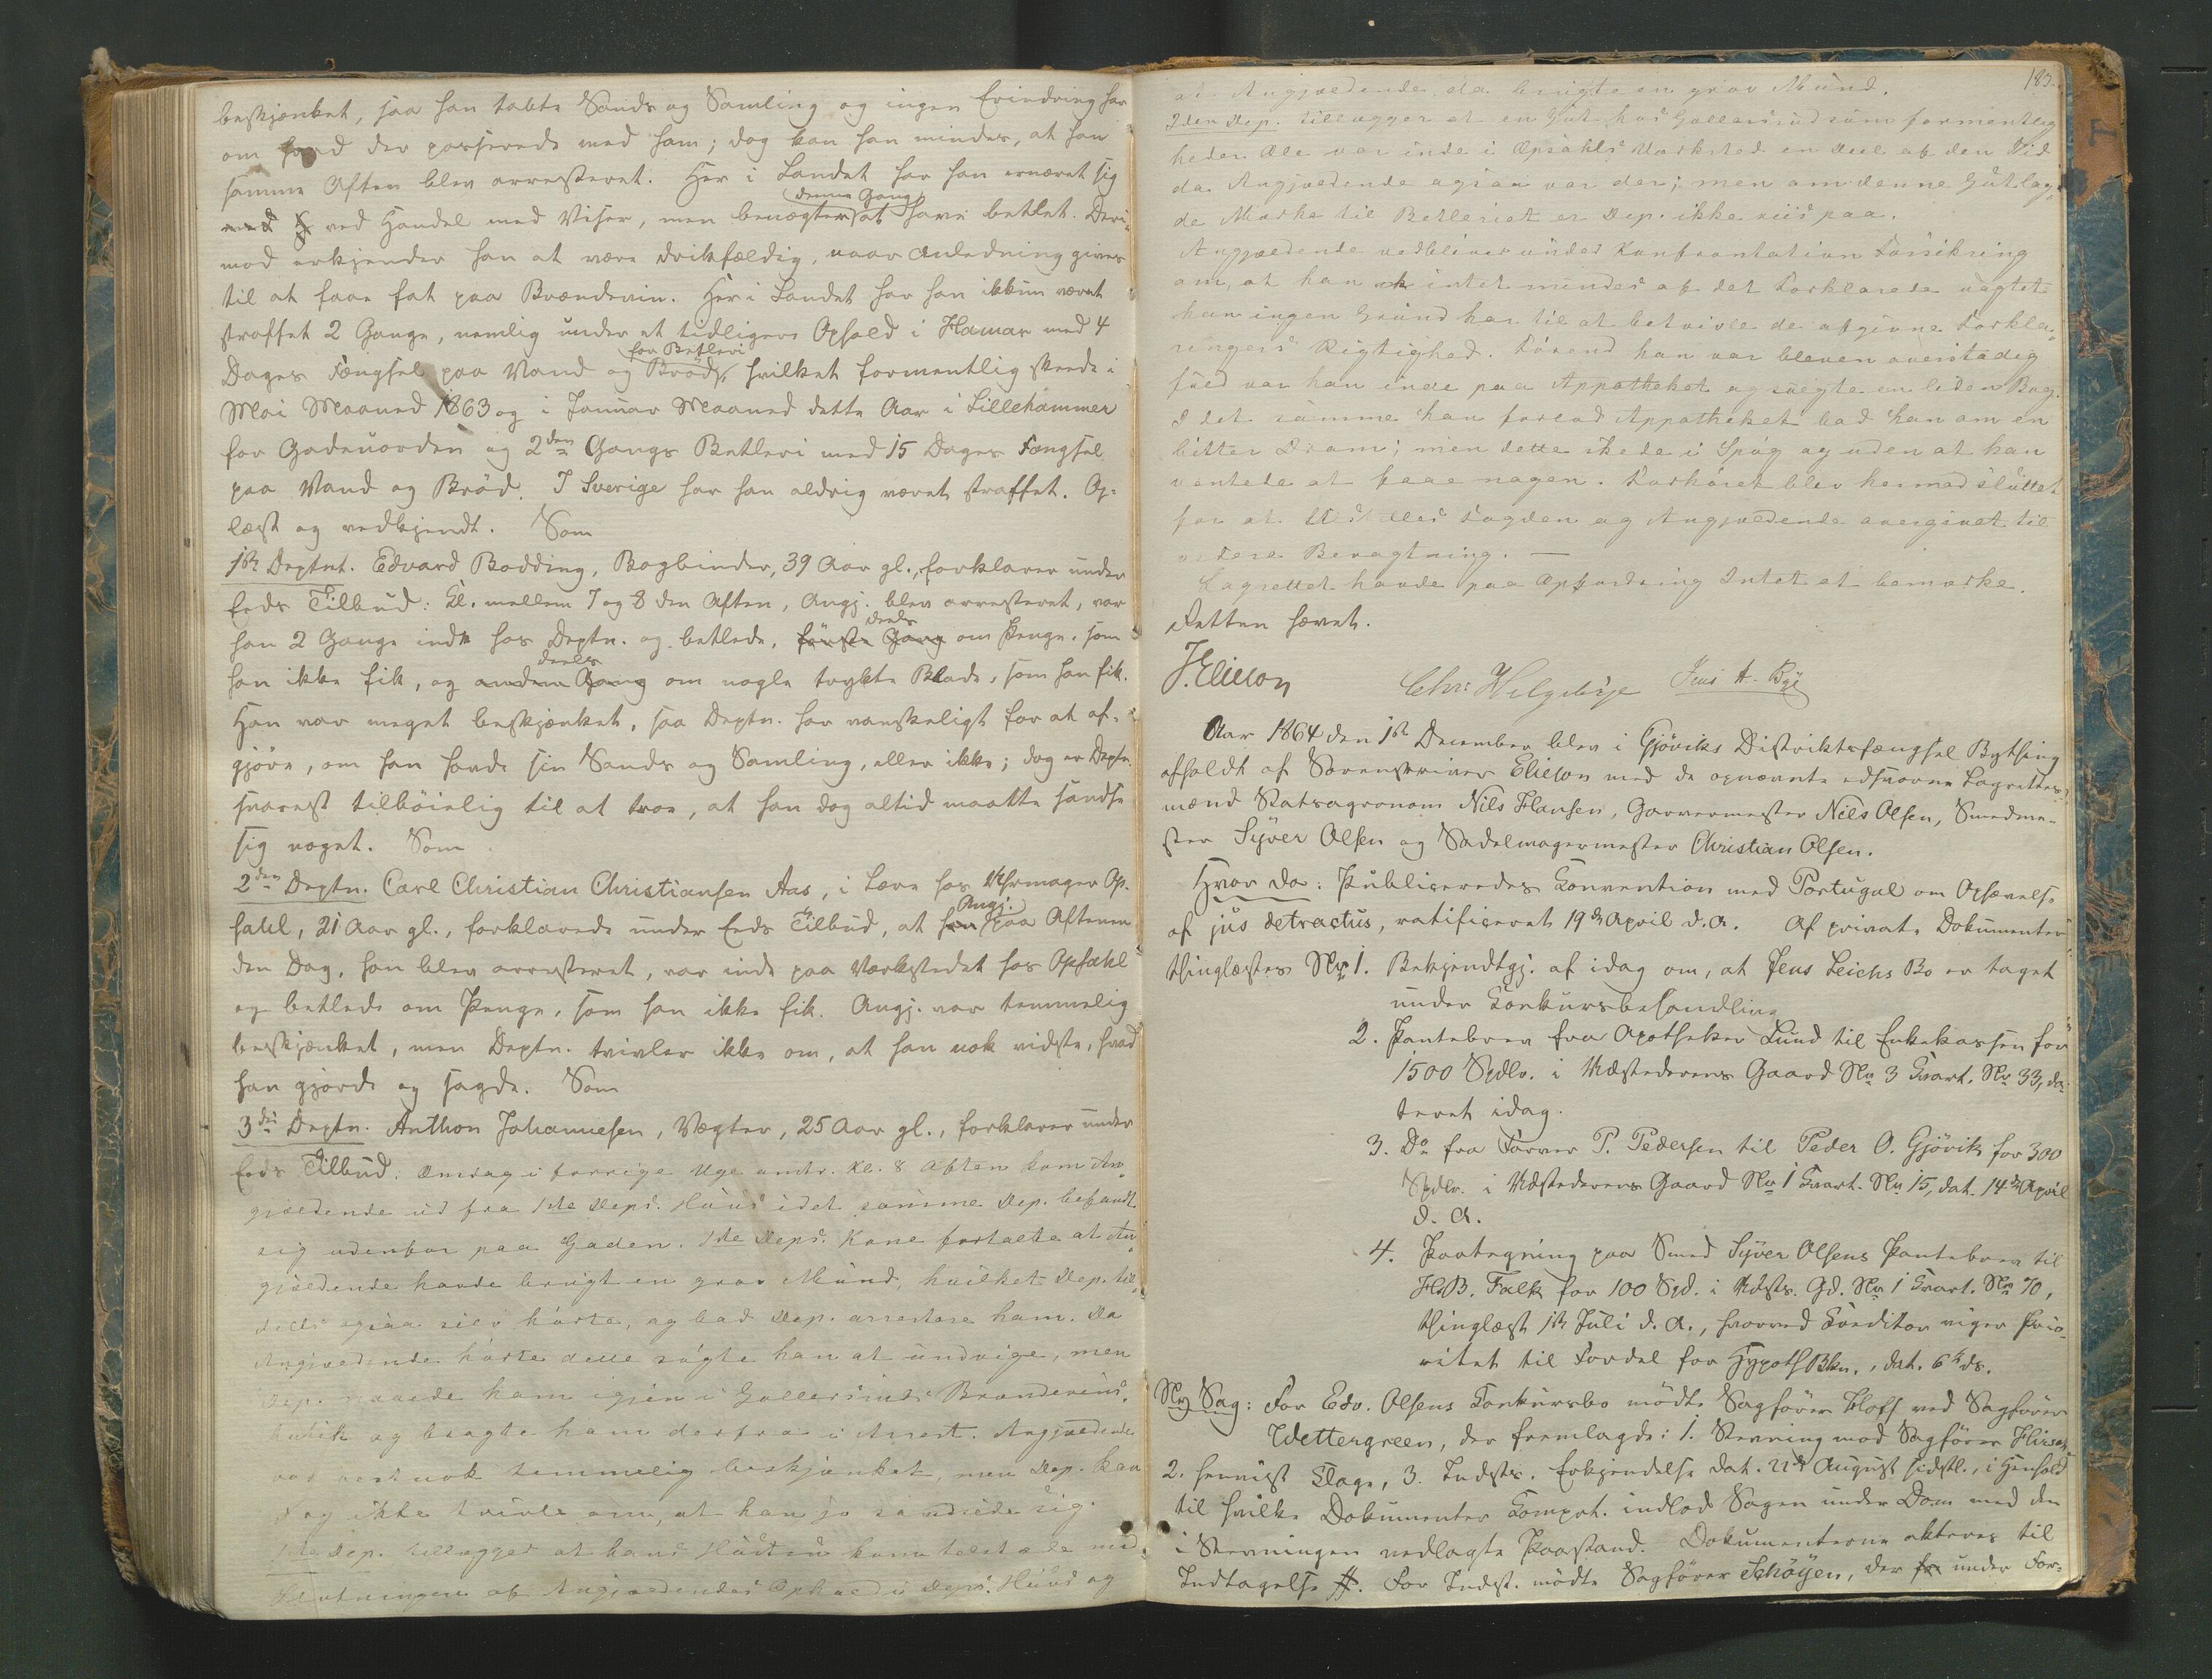 beskjænket, saa han tabte Sands og Samling og ingen Erindring har
om hvad der passerede med ham; dog kan han mindes, at han
samme Aften blev arresteret. Her i Landet har han ernæret sig
ved Handel med Viser, men benægter denne Gang at have betlet. Deri-
mod erkjender han at være drikfældig, naar Anledning gives
til at faae fat paa Brændevin. Her i Landet har han ikkun været
straffet 2 Gange, nemlig under et tidligere Ophold i Hamar med 4
Dages Fængsel paa Vand og Brød for Betleri, hvilket formentlig skede i
Mai Maaned 1863 og i Januar Maaned dette Aar i Lillehammer
for Gadeuorden og 2den Gangs Betleri med 15 Dages Fængsel
paa Vand og Brød. I Sverige har han aldrig været straffet. Op-
læst og vedkjendt. Som
1ste Deptnt. Edvard Bodding, Bogbinder, 39 Aar gl., forklarer under
Eeds Tilbud: Kl. mellem 7 og 8 den Aften, Angj. blev arresteret, var
han 2 Gange inde hos Deptn. og betlede, første Gang deels om Penge, som
han ikke fik, og anden Gang deels om nogle trykte Blade, som han fik.
Han var meget beskjænket, saa Deptn. har vanskeligt for at af-
gjøre, om han havde sin Sands og Samling, eller ikke; dog er Deptn.
snarest tilbøielig til at troe, at han dog altid maatte sandse
sig noget. Som
2den Deptn. Carl Christian Christiansen Aas, i Lære hos Uhrmager Op-
sahl, 21 Aar gl., forklarede under Eeds Tilbud, at han Angj. paa Aftenen
den Dag, han blev arresteret, var inde paa Værkstedet hos Opsahl
og betlede om Penge, som han ikke fik. Angj. var temmelig
beskjænket, men Deptn. tvivler ikke om, at han nok vidste, hvad
han gjorde og sagde. Som
3die Deptn. Anthon Johannesen, Vægter, 25 Aar gl., forklarer under
Eeds Tilbud: Onsdag i forrige Uge omtr. Kl. 8 Aften kom An-
gjældende ud fra 1ste Deps. Huus idet samme Dep. befandt
sig udenfor paa Gaden. 1ste Deps. Kone fortalte at An-
gjældende havde brugt en grov Mund, hvilket Dep. til-
deels ogsaa selv hørte, og bad Dep. arrestere ham. Da
Angjældende hørte dette søgte han at undvige, men
Dep. naaede ham igjen i Gullersruds Brændeviins-
butik og bragte ham derfra i Arrest. Angjældende
var vist nok temmelig beskjænket, men Dep. kan
dog ikke tvivle om, at han jo sandsede sig.
1ste Dep. tillægger at hans Hustru kom tilstede ved
Slutningen af Angjældendes Ophold i Deps. Huus og
183.
at Angjældende da brugte en grov Mund.
2den Dep. tillægger at en Gut hos Gullersrud som formentlig
heder Ole var inde i Opsahls Værksted en Deel af den Tid
da Angjældende ogsaa var der; men om denne Gut lag-
de Mærke til Betleriet er Dep. ikke viis paa.
Angjældende vedbliver under Konfrontation Forsikring
om, at han intet mindes af det Forklarede uagtet
han ingen Grund har til at betvivle de afgivne Forkla-
ringers Rigtighed. Førend han var bleven overstadig
fuld var han inde paa Appotheket og solgte en liden Bog.
I det samme han forlod Appotheket bad han om en
bitter Dram; men dette skede i Spøg og uden at han
ventede at faae nogen. Forhøret blev hermed sluttet
for at tilstilles Fogden og Angjældende overgivet til
videre Bevogtning. —
Lagrettet havde paa Opfordring Intet at bemærke.
Retten hævet.
J. Elieson   Chr. Helgebye   Jens A. Bye
Aar 1864 den 1ste December blev i Gjøviks Distriktsfængsel Bything
afholdt af Sorenskriver Elieson med de opnævnte edsvorne Lagrettes-
mænd Statsagronom Nils Hansen, Garvermester Nils Olsen, Smedme-
ster Syver Olsen og Sadelmagermester Christian Olsen.
Hvor da: Publiceredes Konvention med Portugal om Ophævelse
af jus detractus, ratificeret 19de April d. A. Af private Dokumenter
thinglæstes No 1. Bekjendtgj. af idag om, at Jens Leichs Bo er taget
under Konkursbehandling
2. Pantebrev fra Apotheker Lund til Enkekassen for
1500 Spdlr. i Udstederens Gaard No 3 Kvart. No 33, da-
teret idag.
3. Do fra Farver P. Pedersen til Peder O. Gjøvik for 300
Spdlr. i Udstederens Gaard No 1 Kvart. No 15, dat. 14de April
d. A.
4. Paategning paa Smed Syver Olsens Pantebrev til
H. B. Falk for 100 Spd. i Udsts. Gd. No 1 Kvart. No 70,
thinglæst 1ste Juli d. A., hvorved Kreditor viger Prio-
ritet til Fordel for HypothBkn., dat. 6te ds.
Ny Sag: For Edv. Olsens Konkursbo mødte Sagfører Kloss ved Sagfører
Wettergreen, der fremlagde: 1. Stevning mod Sagfører Hirsch
2. henvist Klage, 3. Indsts. Erkjendelse dat. 22de August sidstl., i Henhold
til hvilke Dokumenter Kompt. indlod Sagen under Dom med den
i Stevningen nedlagte Paastand. Dokumenterne akteres til
Indtagelse #. For Indst. mødte Sagfører Schøyen, der for under For-